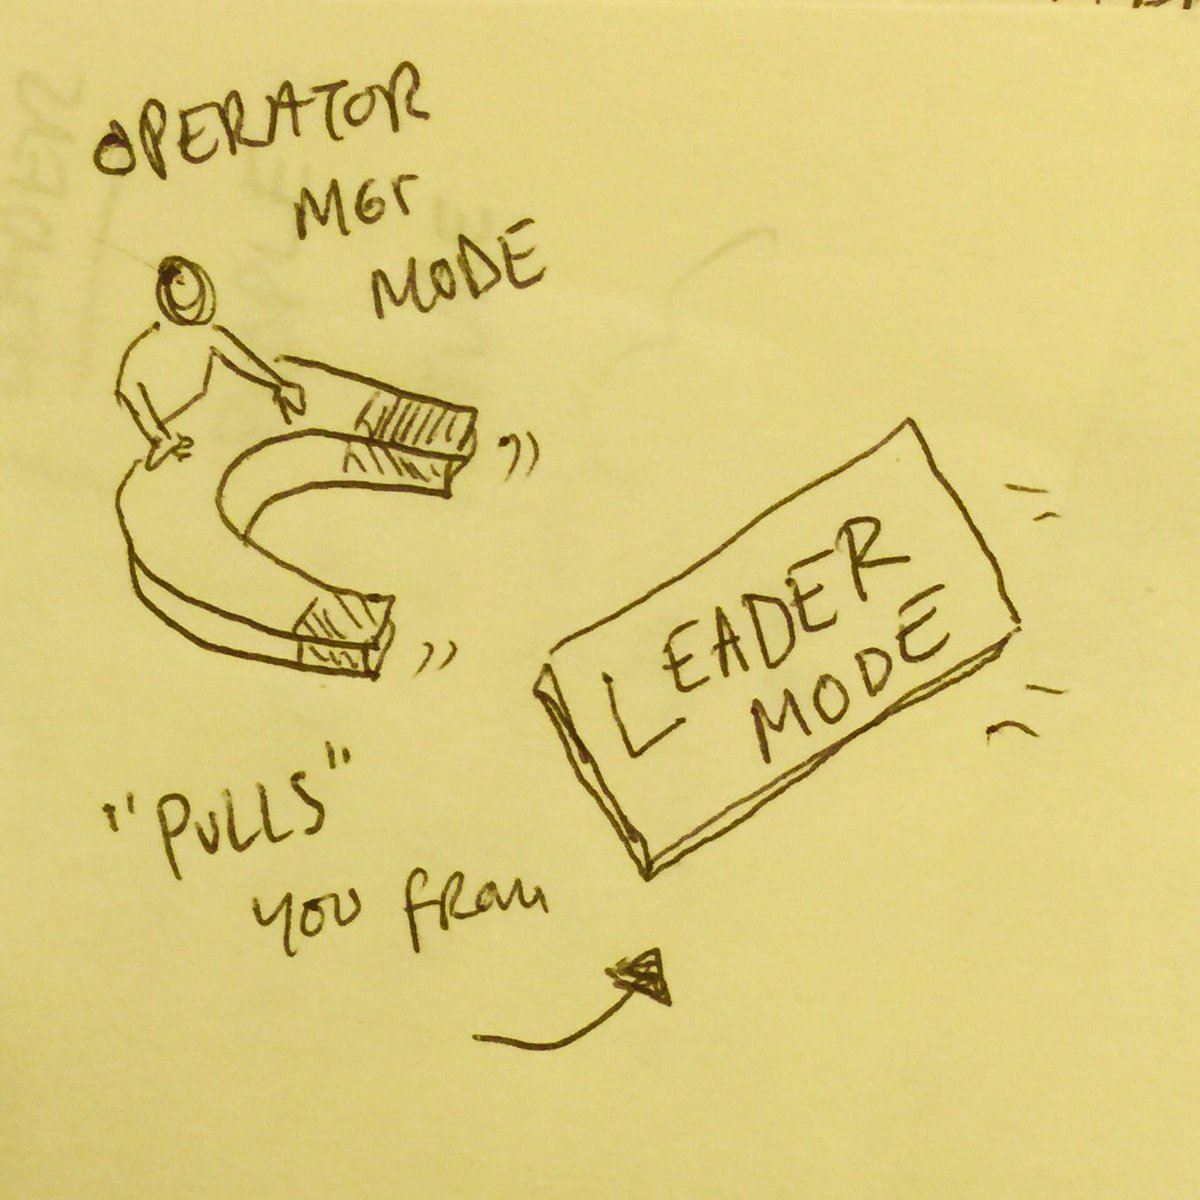 OPERATOR
MGr
MODE
LEADER
MODE
"PULLS"
YOU FROM